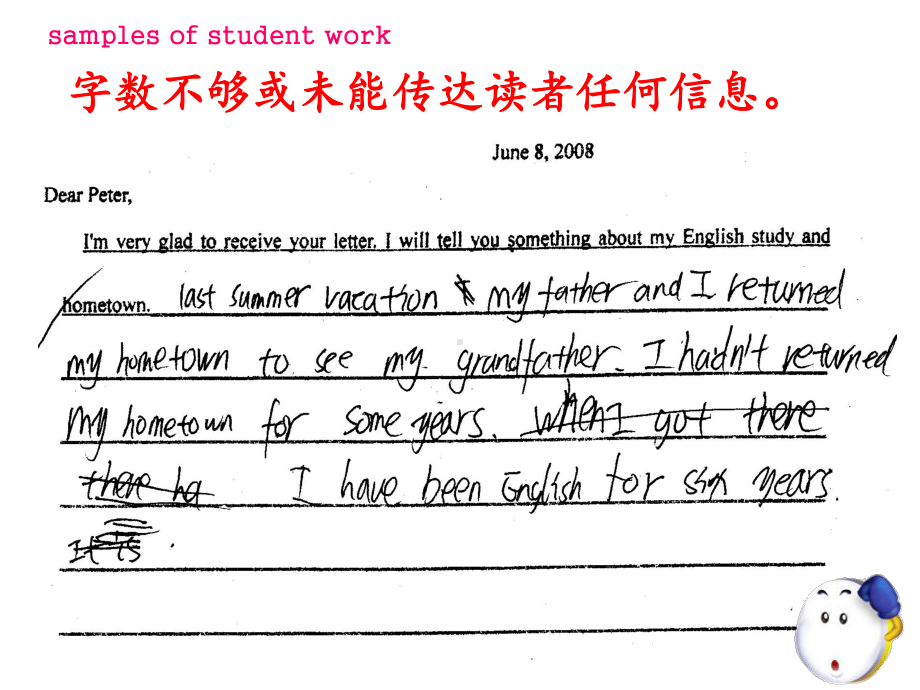 samples of student work
字数不够或未能传达读者任何信息。
June 8, 2008
Dear Peter,
I'm very glad to receive your letter. I will tell you something about my English study and
hometown. last summer vacation my father and I returned
my hometown to see my grandfather. I hadn't returned
my hometown for some years. When I got there
there ha I have been English for six years.
It is .